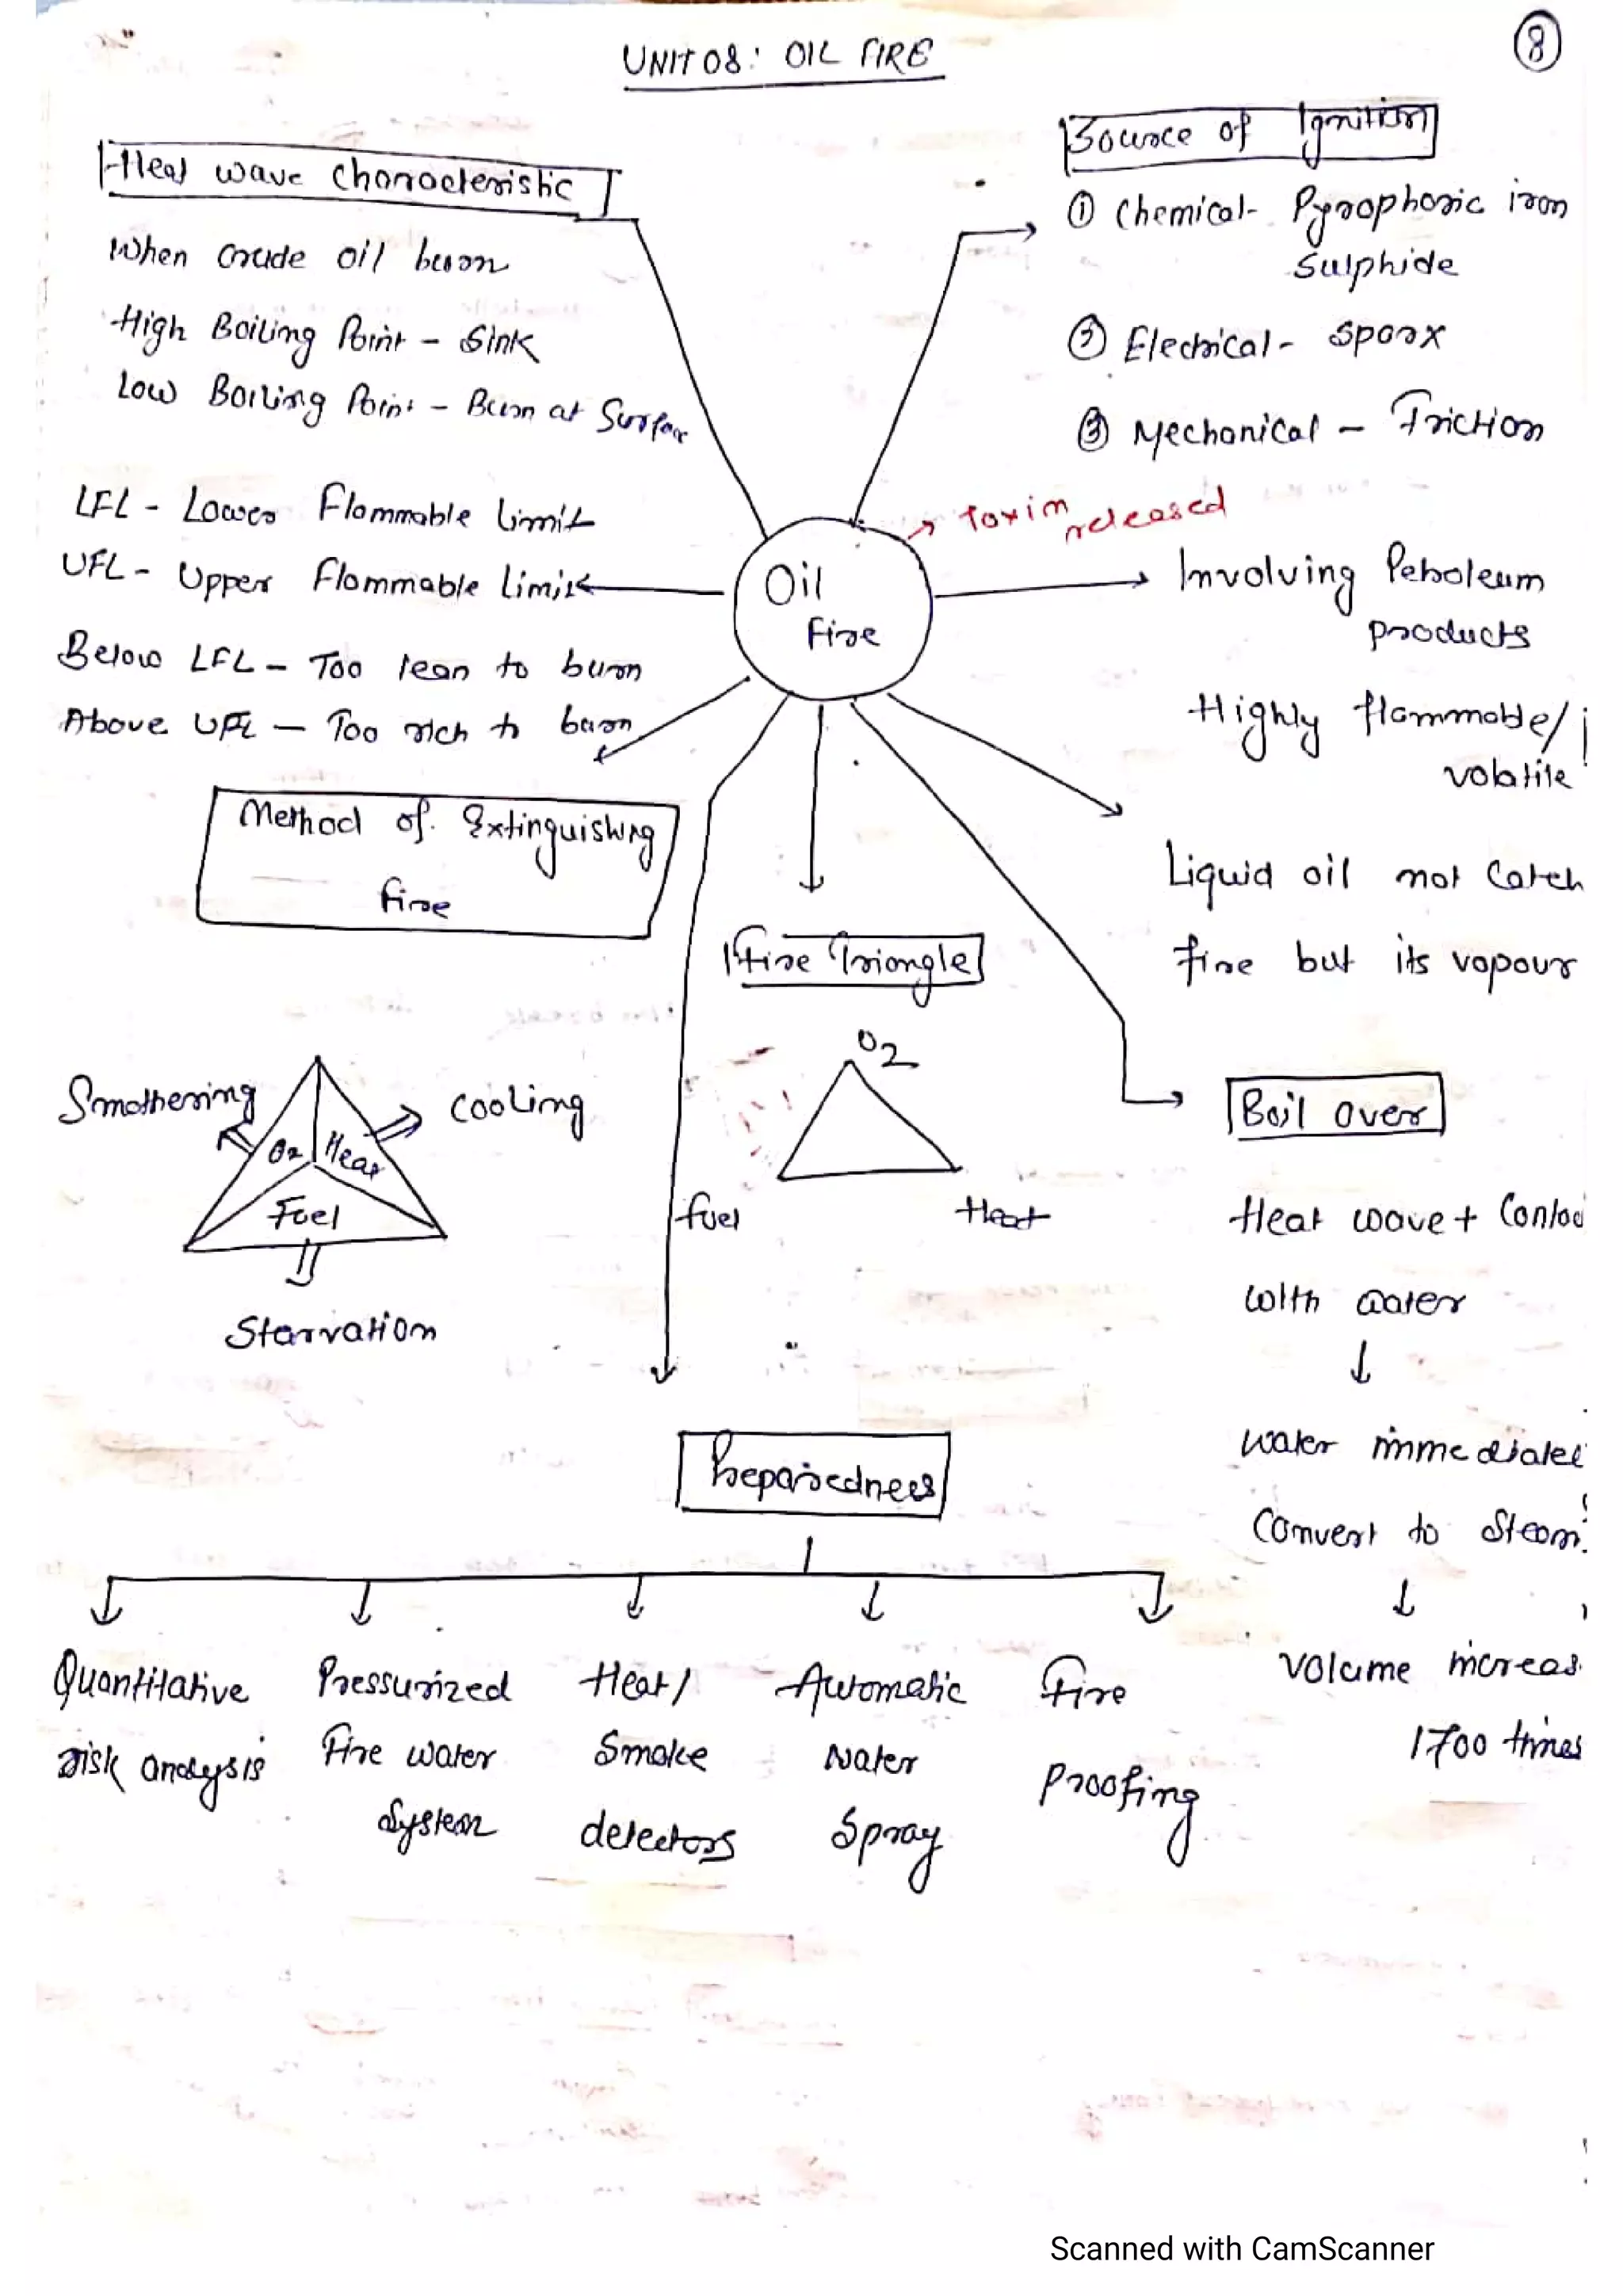 UNIT 08: OIL FIRE
8
Heat wave characteristic
When crude oil burn
High Boiling Point - Sink
Low Boiling Point - Burn at Surface
LFL - Lower Flammable Limit
UFL - Upper Flammable Limit
Below LFL - Too lean to burn
Above UFL - Too rich to burn
Source of Ignition
① Chemical- Pyrophoric iron
Sulphide
② Electrical - Spark
③ Mechanical - Friction
→ Toxin released
Oil
Fire
Involving Petroleum
products
Highly flammable/
volatile
Liquid oil not Catch
fire but its vapour
Method of Extinguishing
fire
Smothering
O2
Heat
Cooling
Fuel
Starvation
Fire Triangle
O2
fuel
Heat
Boil over
Heat wave +
with water
↓
water
Convert to Steam
↓
Volume
1700 times
Preparedness
Quantitative
risk analysis
Pressurized
Fire water
System
Heat/
Smoke
detectors
Automatic
Water
Spray
Fire
Proofing
Scanned with CamScanner